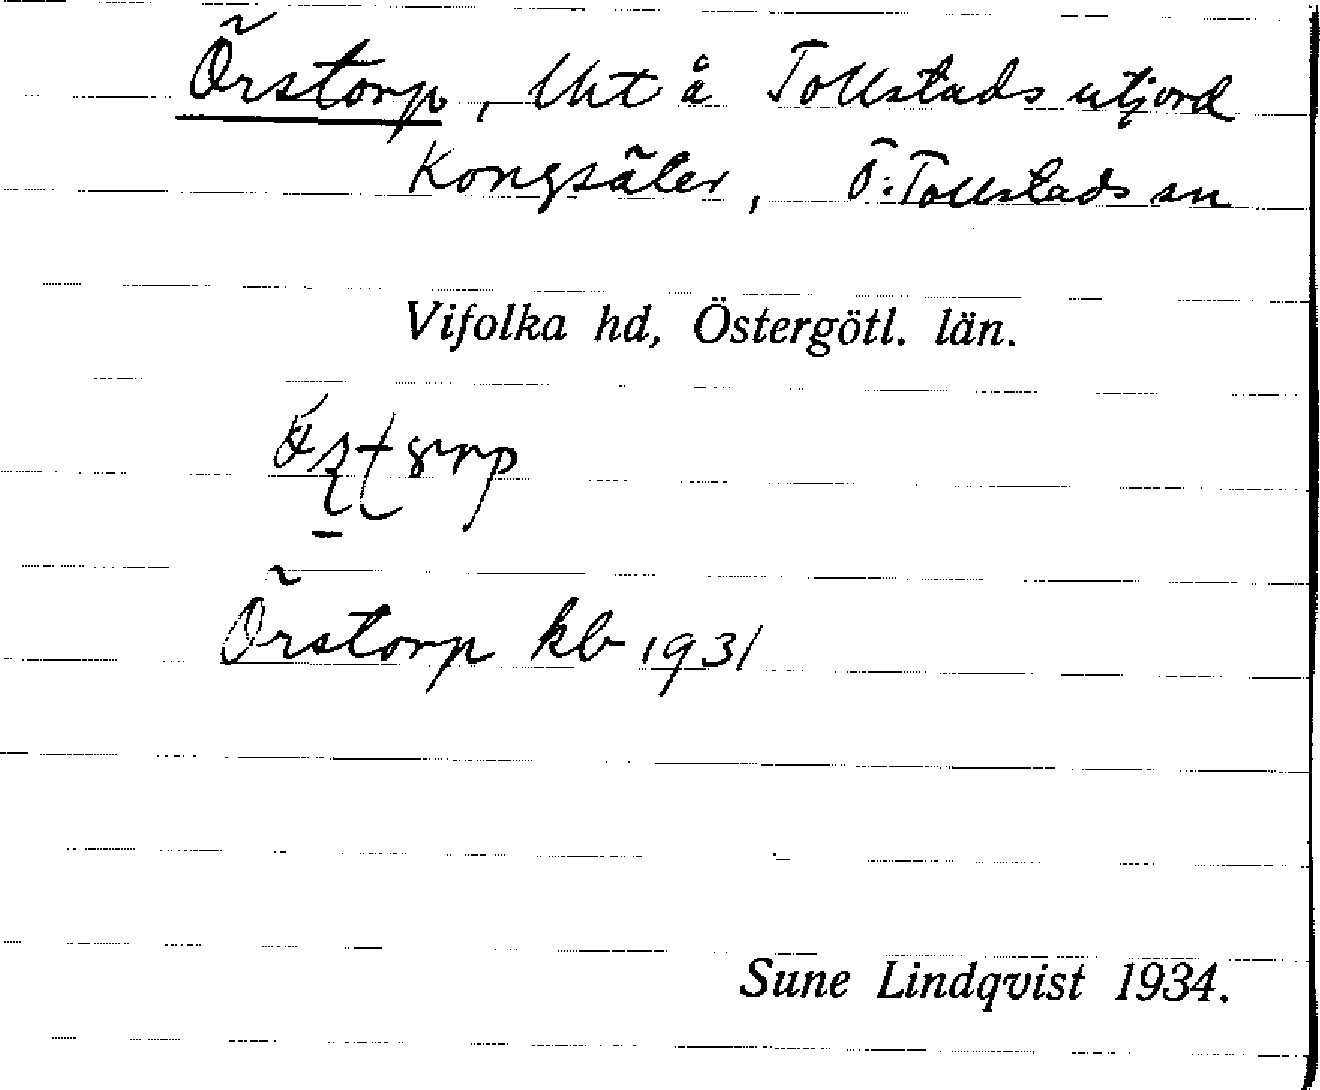 Örstorp, lht å Tollstads utjord
Kongsäter, Ö. Tollstads sn
Vifolka hd, Östergötl. län.
Örstorp kb 1931
Sune Lindqvist 1934.